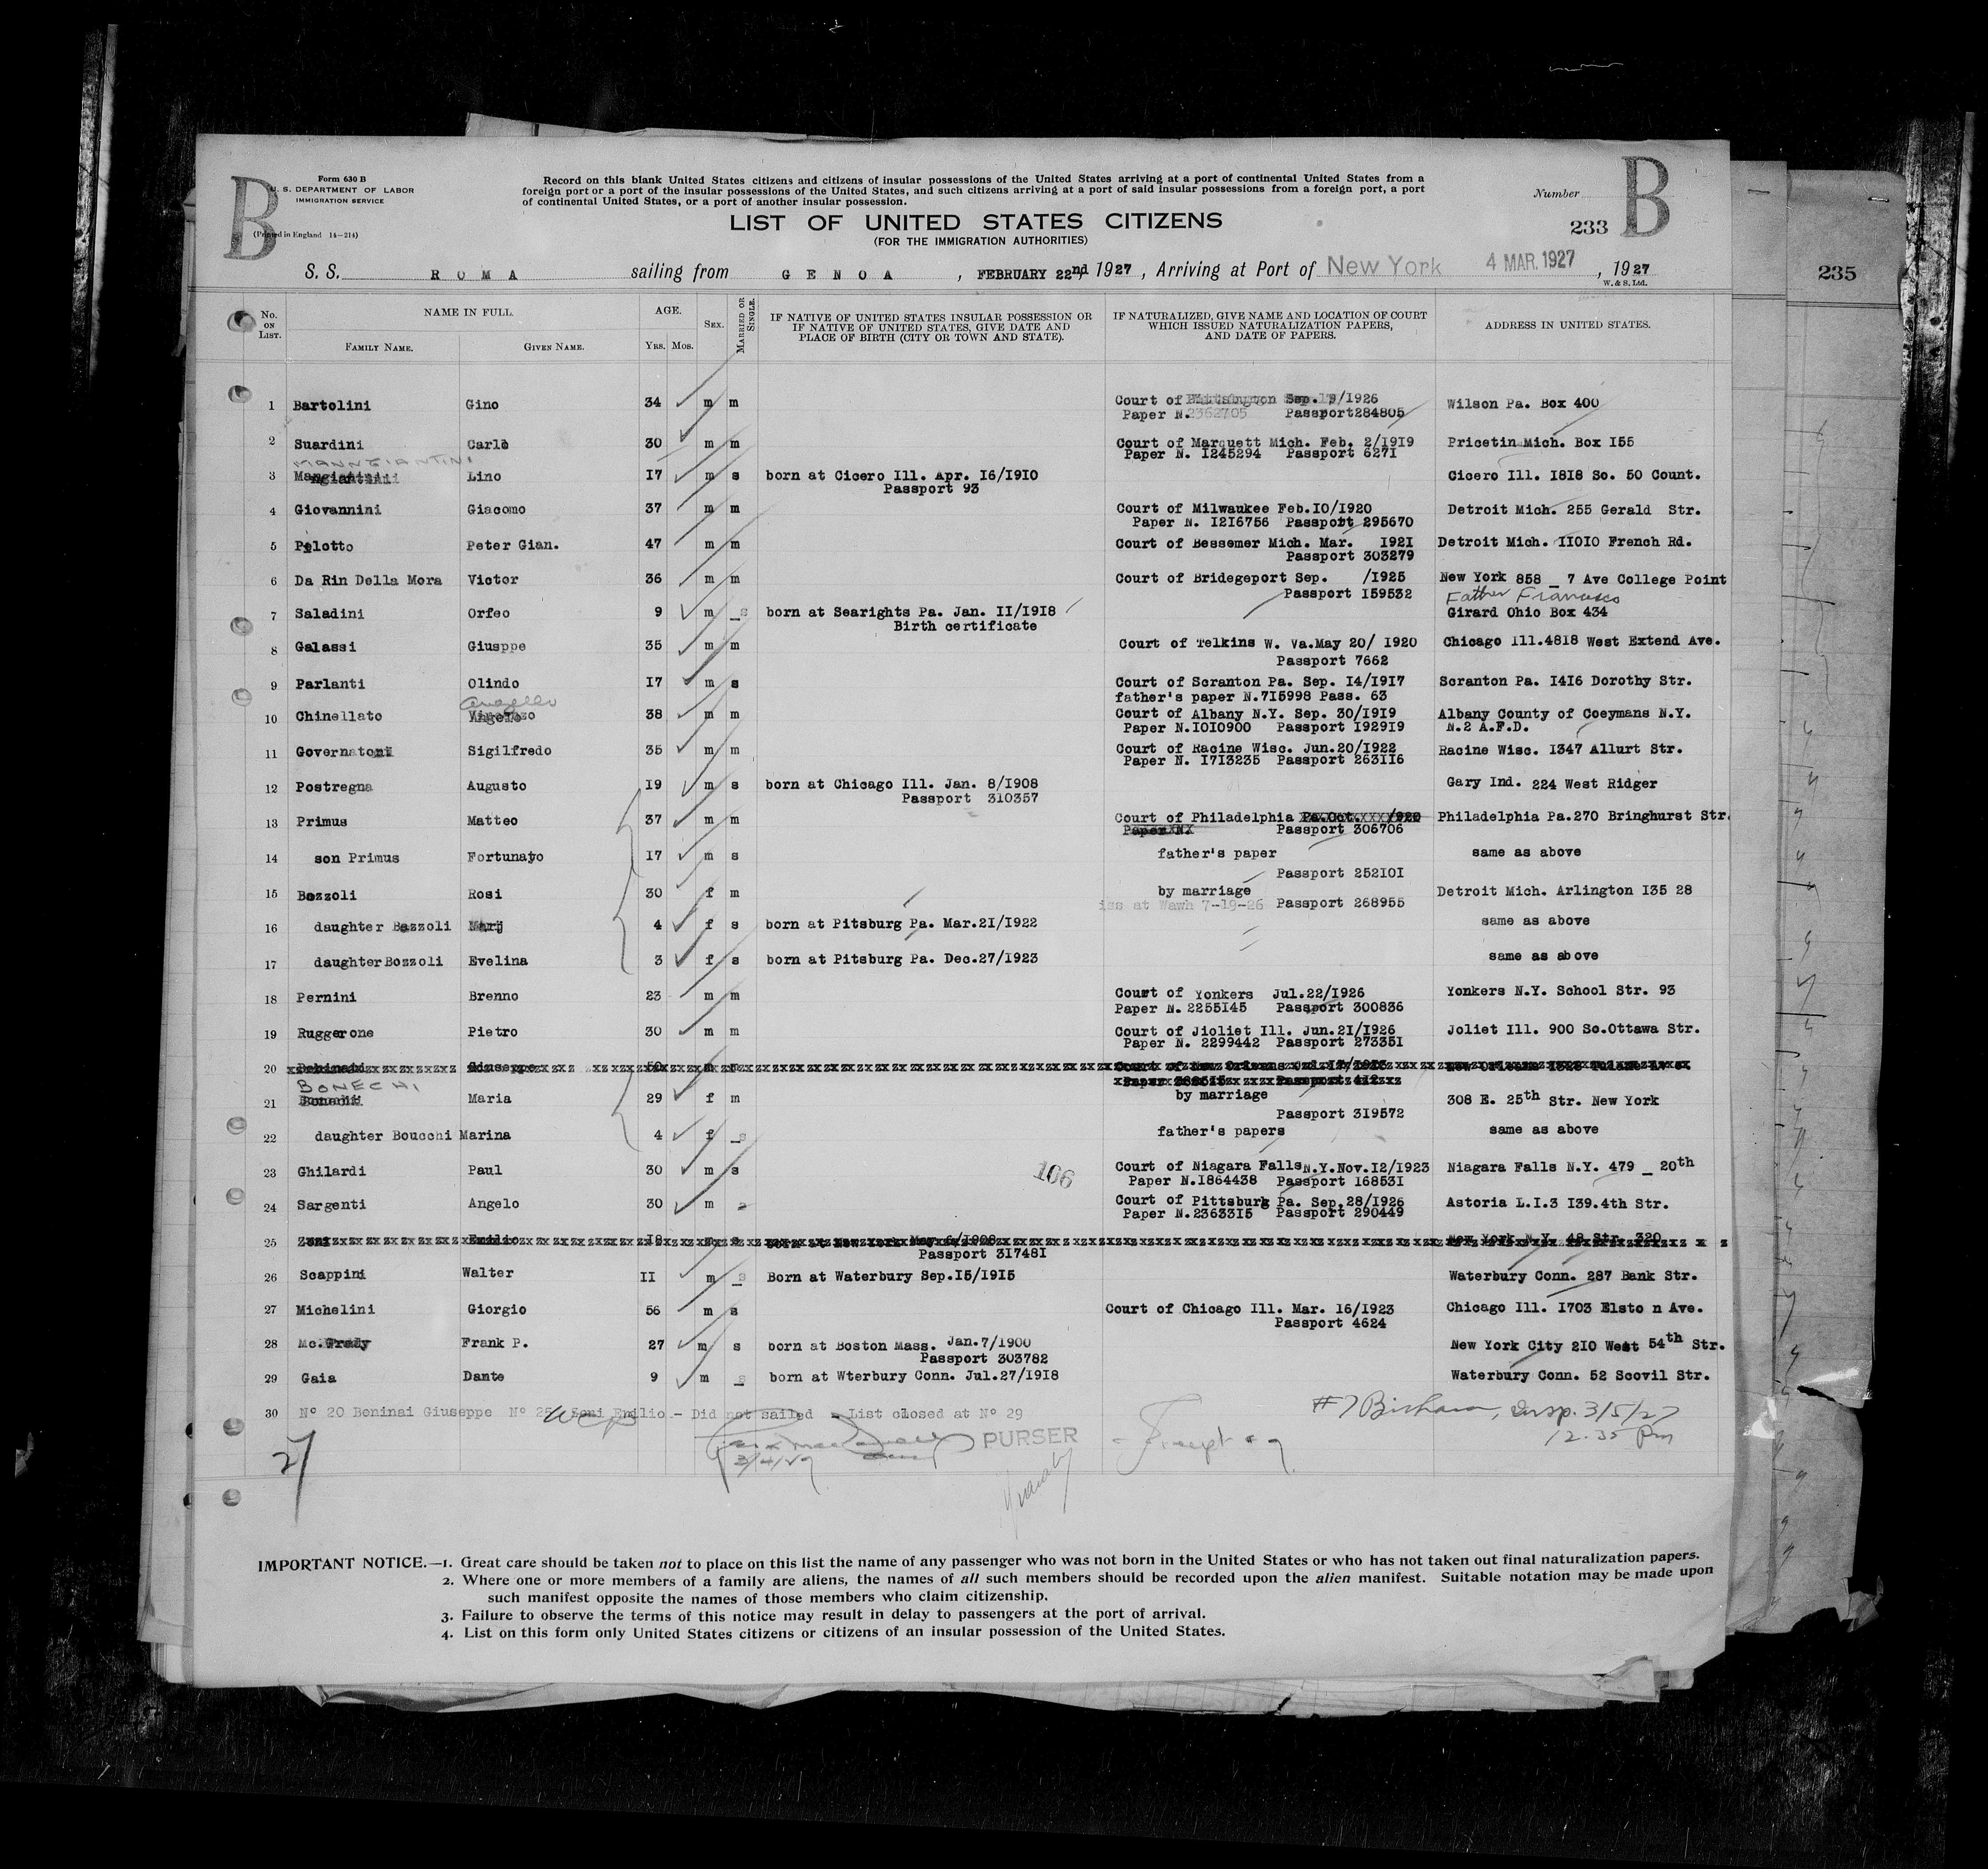 B
Form 630 B
U. S. DEPARTMENT OF LABOR
IMMIGRATION SERVICE
(Printed in England 14—214)
Record on this blank United States citizens and citizens of insular possessions of the United States arriving at a port of continental United States from a
foreign port or a port of the insular possessions of the United States, and such citizens arriving at a port of said insular possessions from a foreign port, a port
of continental United States, or a port of another insular possession.
LIST OF UNITED STATES CITIZENS
(FOR THE IMMIGRATION AUTHORITIES)
Number
233
B
235
S. S. ROMA sailing from GENOA, FEBRUARY 22nd, 1927, Arriving at Port of New York 4 MAR. 1927, 1927
W. & S. Ltd.
No. ON LIST. NAME IN FULL. AGE. SEX. MARRIED OR SINGLE. IF NATIVE OF UNITED STATES INSULAR POSSESSION OR IF NATIVE OF UNITED STATES, GIVE DATE AND PLACE OF BIRTH (CITY OR TOWN AND STATE). IF NATURALIZED, GIVE NAME AND LOCATION OF COURT WHICH ISSUED NATURALIZATION PAPERS, AND DATE OF PAPERS. ADDRESS IN UNITED STATES.
FAMILY NAME. GIVEN NAME. YRS. MOS.
1 Bartolini Gino 34 m m Court of Sep. /1926 Wilson Pa. Box 400
Paper N. 2362705 Passport284805
2 Suardini Carlo 30 m m Court of Marquett Mich. Feb. 2/1919 Pricetin Mich. Box I55
Paper N. I245294 Passport 627I
MANNGIANTINI
3 Lino I7 m s born at Cicero Ill. Apr. I6/I9I0 Cicero Ill. I8I8 So. 50 Count.
Passport 93
4 Giovannini Giacomo 37 m m Court of Milwaukee Feb.IO/I920 Detroit Mich. 255 Gerald Str.
Paper N. I2I6756 Passport 295670
5 Pilotto Peter Gian. 47 m m Court of Bessemer Mich. Mar. I92I Detroit Mich. IIOIO French Rd.
Passport 303279
6 Da Rin Della Mora Victor 36 m m Court of Bridgeport Sep. /I925 New York 858 _ 7 Ave College Point
Passport I59532
Father Francesco
7 Saladini Orfeo 9 m s born at Searights Pa. Jan. II/I9I8 Girard Ohio Box 434
Birth certificate
8 Galassi Giusppe 35 m m Court of Telkins W. Va.May 20/ I920 Chicago Ill.4818 West Extend Ave.
Passport 7662
9 Parlanti Olindo I7 m s Court of Scranton Pa. Sep. I4/I9I7 Scranton Pa. I4I6 Dorothy Str.
father's paper N.7I5998 Pass. 63
10 Chinellato 38 m m Court of Albany N.Y. Sep. 30/I9I9 Albany County of Coeymans N.Y.
Paper N.IOIO900 Passport I929I9 N.2 A.F.D.
11 Governatori Sigilfredo 35 m m Court of Racine Wisc. Jun.20/I922 Racine Wisc. I347 Allurt Str.
Paper N. I7I3235 Passport 263II6
12 Postregna Augusto I9 m s born at Chicago Ill. Jan. 8/I908 Gary Ind. 224 West Ridger
Passport 3I0357
13 Primus Matteo 37 m m Court of Philadelphia Pa.Oct. /920 Philadelphia Pa.270 Bringhurst Str.
Paper N Passport 306706
14 son Primus Fortunato I7 m s father's paper same as above
Passport 252IOI
15 Bozzoli Rosi 30 f m by marriage Detroit Mich. Arlington I35 28
iss at Wawh 7-19-26 Passport 268955
16 daughter Bozzoli 4 f s born at Pitsburg Pa. Mar.2I/I922 same as above
17 daughter Bozzoli Evelina 3 f s born at Pitsburg Pa. Dec.27/I923 same as above
18 Pernini Brenno 23 m m Court of Yonkers Jul.22/I926 Yonkers N.Y. School Str. 93
Paper N. 2255I45 Passport 300836
19 Ruggerone Pietro 30 m m Court of Jioliet Ill. Jun.2I/I926 Joliet Ill. 900 So.Ottawa Str.
Paper N. 2299442 Passport 27335I
20 Giuseppe 50 m m Court of New Orleans
BONECHI
21 Maria 29 f m by marriage 308 E. 25th Str. New York
Passport 3I9572
22 daughter Boucchi Marina 4 f s father's papers same as above
106
23 Ghilardi Paul 30 m s Court of Niagara Falls N.Y.Nov.I2/I923 Niagara Falls N.Y. 479 _ 20th
Paper N.I864438 Passport I6853I
24 Sargenti Angelo 30 m s Court of Pittsburg Pa. Sep.28/I926 Astoria L.I.3 I39.4th Str.
Paper N.23633I5 Passport 290449
25 Zeni Emilio I8 m s born at New York May 6/I908 New York N.Y. 48 Str. 320
Passport 3I748I
26 Scappini Walter II m s Born at Waterbury Sep.I5/I9I5 Waterbury Conn. 287 Bank Str.
27 Michelini Giorgio 56 m s Court of Chicago Ill. Mar. I6/I923 Chicago Ill. I703 Elsto n Ave.
Passport 4624
28 Mc.Grady Frank P. 27 m s born at Boston Mass. Jan.7/I900 New York City 2I0 West 54th Str.
Passport 303782
29 Gaia Dante 9 m s born at Wterbury Conn. Jul.27/I9I8 Waterbury Conn. 52 Scovil Str.
30 No 20 Beninai Giuseppe No 25 Zeni Emilio - Did not sailed - List closed at No 29
PURSER
#7 , Insp. 3/5/27
12.35 Pm
27
IMPORTANT NOTICE.—1. Great care should be taken not to place on this list the name of any passenger who was not born in the United States or who has not taken out final naturalization papers.
2. Where one or more members of a family are aliens, the names of all such members should be recorded upon the alien manifest. Suitable notation may be made upon
such manifest opposite the names of those members who claim citizenship.
3. Failure to observe the terms of this notice may result in delay to passengers at the port of arrival.
4. List on this form only United States citizens or citizens of an insular possession of the United States.